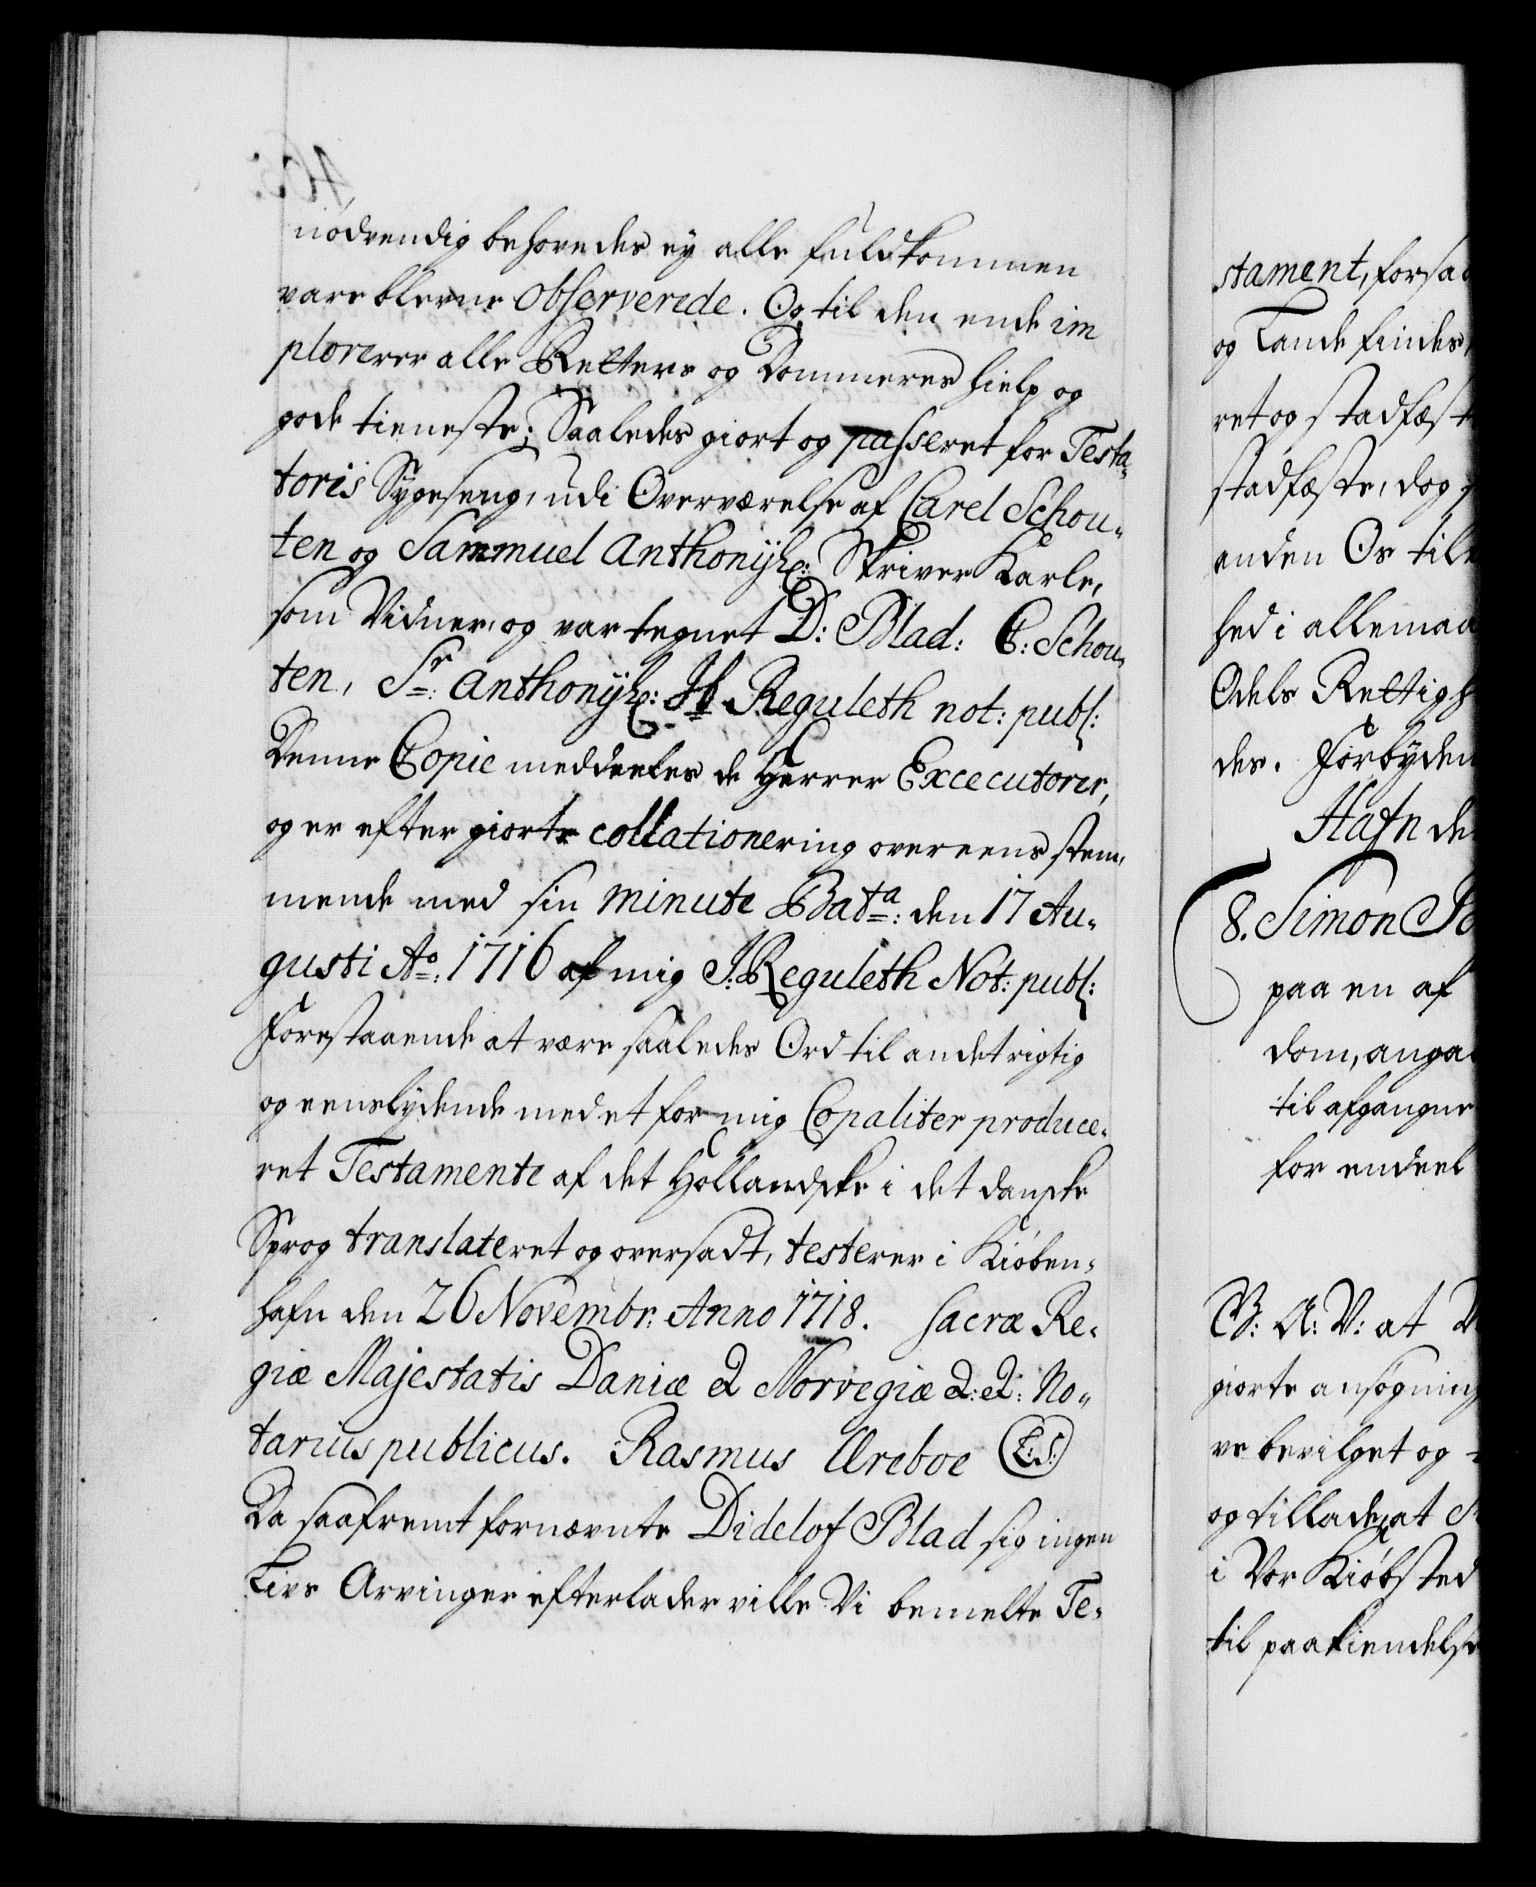 nødvendig behøvedes ey alle fuldkommen
vare blevne observerede. Og til den ende im
plorerer alle Retters og Dommeres hielp og
gode tieneste; Saaledes giort og passeret for Testa-
toris Sygeseng, udi Overværelse af Carel Schou-
ten og Sammuel Anthonijz: Skriver Karle,
som Vidner, og var tegnet D: Blad: C: Schou-
ten, Sr: Anthonijz: Reguleth not: publ:
Denne Copie meddeeles de Herrer Excecutorer,
og er efter giorte collationering overeens stem-
mende med sin minute Bata: den 17 Au-
gusti Ao: 1716 af mig J: Reguleth Not: publ:
Forestaaende at være saaledes Ord til andet rigtig
og eenslydende med et for mig Copaliter produce-
ret Testamente af det Hollandske i det danske
Sprog translateret og oversadt, testerer i Kiøben-
hafn den 26 Novembr: Anno 1718. Sacræ Re-
giæ Majestatis Daniæ & Norvegiæ &: &: No-
tarius publicus. Rasmus Ureboe (L:S:)
Da saafremt fornævnte Didelof Blad sig ingen
Livs Arvinger efterlader ville Vi bemelte Te-
stament, forsaa
og Lande findes
ret og stadfæst
stadfæste, dog
anden Os til
hed i allemaa
Odels Rettigh
des. Forbyden
Hafn de
8. Simon Po
paa en af
dom, anga
til afgangne
for endeel
G: A: V: at V
giorte ansøgning
ve bevilget og
og tillade, at S
i Vor Kiøbsted
til paakiendelse